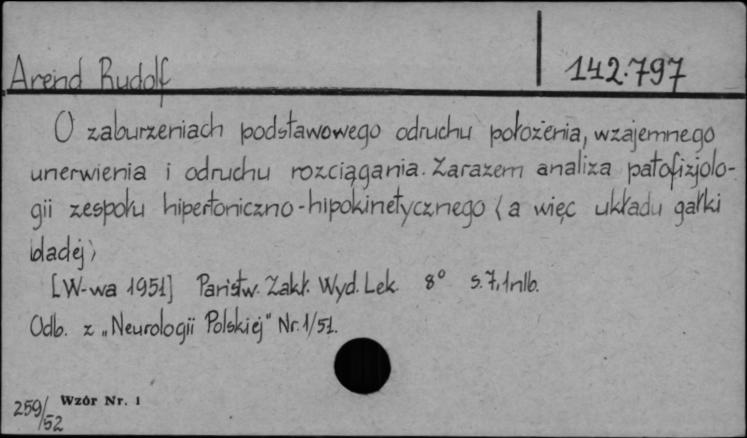 Arend Rudolf
142.797
O zaburzeniach podstawowego odruchu położenia, wzajemnego
unerwienia i odruchu rozciągania. Zarazem analiza patofizjolo-
gii zespołu hipertoniczno-hipokinetycznego (a więc układu gałki
bladej)
[W-wa 1951] Państw. Zakł. Wyd. Lek. 8° s. 7, 1nlb.
Odb. z „Neurologii Polskiej" Nr. 1/51.
259/52
Wzór Nr. 1